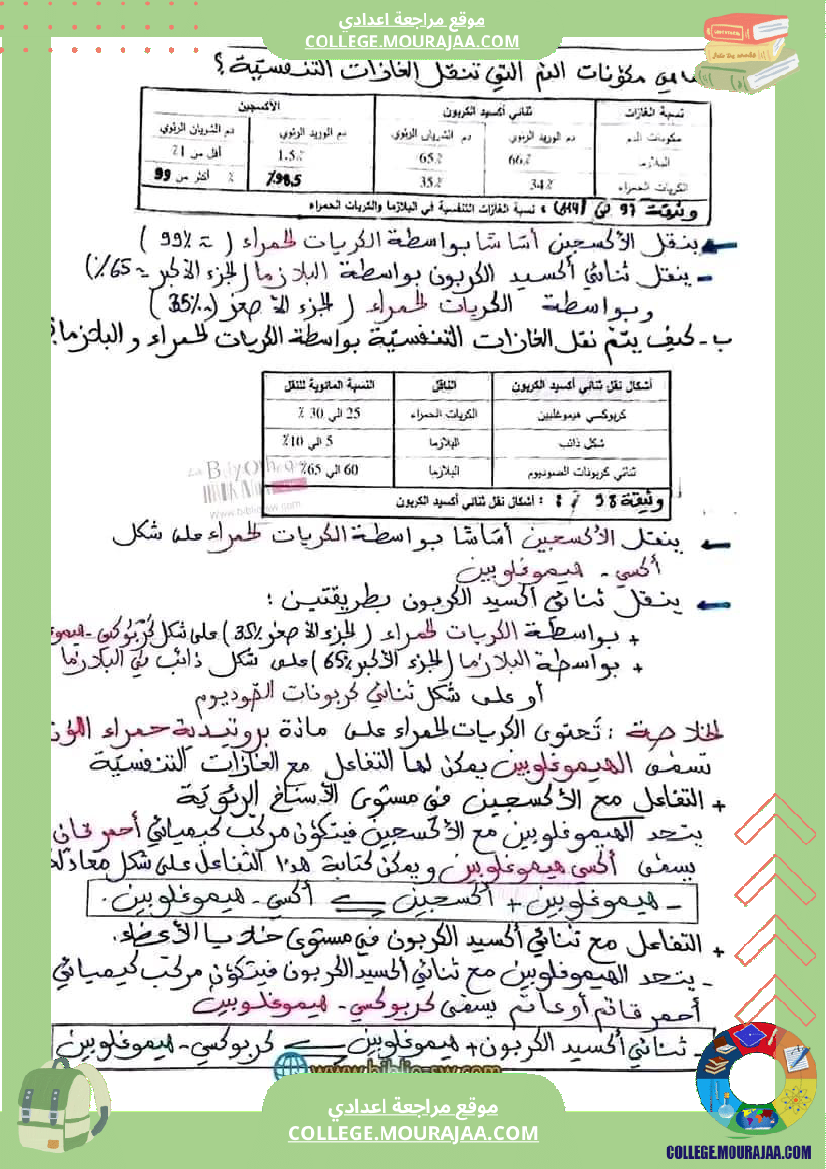 موقع مراجعة اعدادي
COLLEGE.MOURAJAA.COM
ما هي مكوّنات الدم التي تنقل الغازات التنفسيّة؟
نسبة الغازات ثنائي أكسيد الكربون الأكسجين
مكونات الدم دم الوريد الرئوي دم الشريان الرئوي دم الوريد الرئوي دم الشريان الرئوي
البلازما 66٪ 65٪ 1.5٪ أقل من 1٪
الكريات الحمراء 34٪ 35٪ 98.5٪ أكثر من 99 ٪
وثيقة 97 : نسبة الغازات التنفسية في البلازما والكريات الحمراء
ينقل الأكسجين أساسًا بواسطة الكريات الحمراء ( ≈ 99٪ )
- ينقل ثنائي أكسيد الكربون بواسطة البلازما (الجزء الأكبر ≈ 65٪)
وبواسطة الكريات الحمراء ( الجزء الأصغر 35٪)
ب - كيف يتمّ نقل الغازات التنفسيّة بواسطة الكريات الحمراء و البلازما؟
أشكال نقل ثنائي أكسيد الكربون الناقل النسبة المائوية للنقل
كربوكسي هيموغلبين الكريات الحمراء 25 الى 30 ٪
شكل ذائب البلازما 5 الى 10٪
ثنائي كربونات الصوديوم البلازما 60 الى 65٪
وثيقة 98 : أشكال نقل ثنائي أكسيد الكربون
ينقل الأكسجين أساسًا بواسطة الكريات الحمراء على شكل
أكسي - هيموغلوبين
ينقل ثنائي أكسيد الكربون بطريقتين :
+ بواسطة الكريات الحمراء ( الجزء الأصغر 35٪) على شكل كربوكسي - هيمو
+ بواسطة البلازما (الجزء الأكبر 65٪) على شكل ذائب في البلازما
أو على شكل ثنائي كربونات الصوديوم
الخلاصة : تحتوي الكريات الحمراء على مادة بروتيدية حمراء اللون
تسمّى الهيموغلوبين يمكن لها التفاعل مع الغازات التنفسيّة
+ التفاعل مع الأكسجين في مستوى الأسناخ الرئويّة
يتحد الهيموغلوبين مع الأكسجين فيتكوّن مركّب كيميائي أحمر قاني
يسمّى أكسي هيموغلوبين و يمكن كتابة هذا التفاعل على شكل معادلة
- هيموغلوبين + أكسجين ⇌ أكسي - هيموغلوبين.
+ التفاعل مع ثنائي أكسيد الكربون في مستوى خلايا الأعضاء.
- يتحد الهيموغلوبين مع ثنائي أكسيد الكربون فيتكوّن مركّب كيميائي
أحمر قاتم أو عاتم يسمّى كربوكسي - هيموغلوبين
- ثنائي أكسيد الكربون + هيموغلوبين ⇌ كربوكسي - هيموغلوبين
www.biblio-sw.com
موقع مراجعة اعدادي
COLLEGE.MOURAJAA.COM
COLLEGE.MOURAJAA.COM